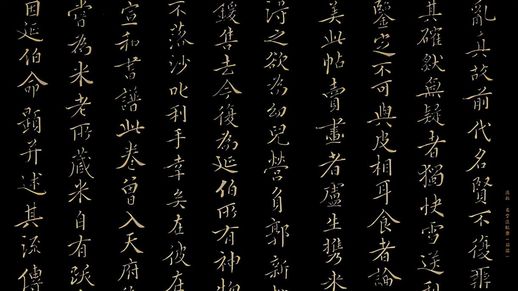 亂真故前代名賢不復
其確然無疑者獨快雪送
鑒定不可與皮相耳食者論
美此帖賣畫者盧生携米
得之欲為幼兒營負郭新
鍰售去今復為延伯所有神物
不落沙叱利手幸矣在彼在
宣和書譜此卷曾入天府
嘗為米老所藏米自有跋
因延伯命題并述其流傳